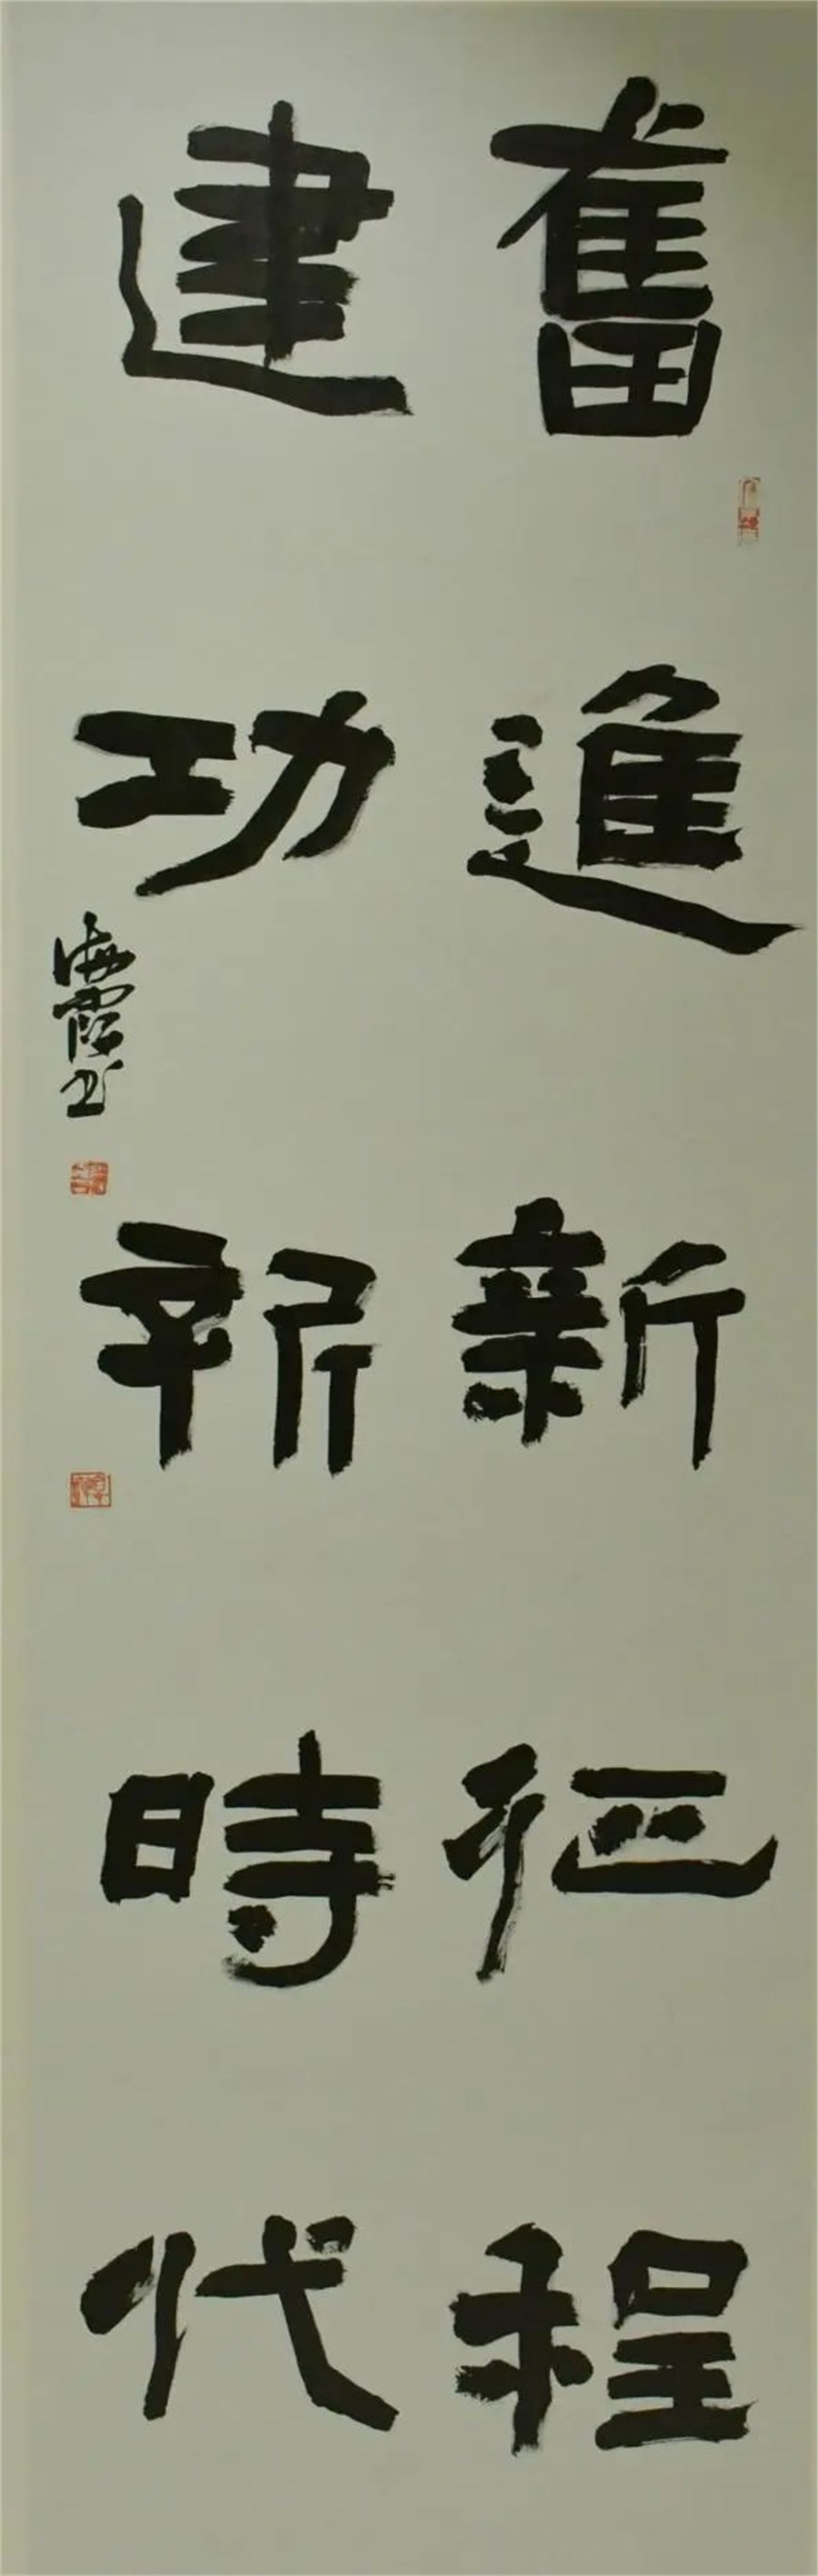 奮進新征程
建功新時代
海霞书